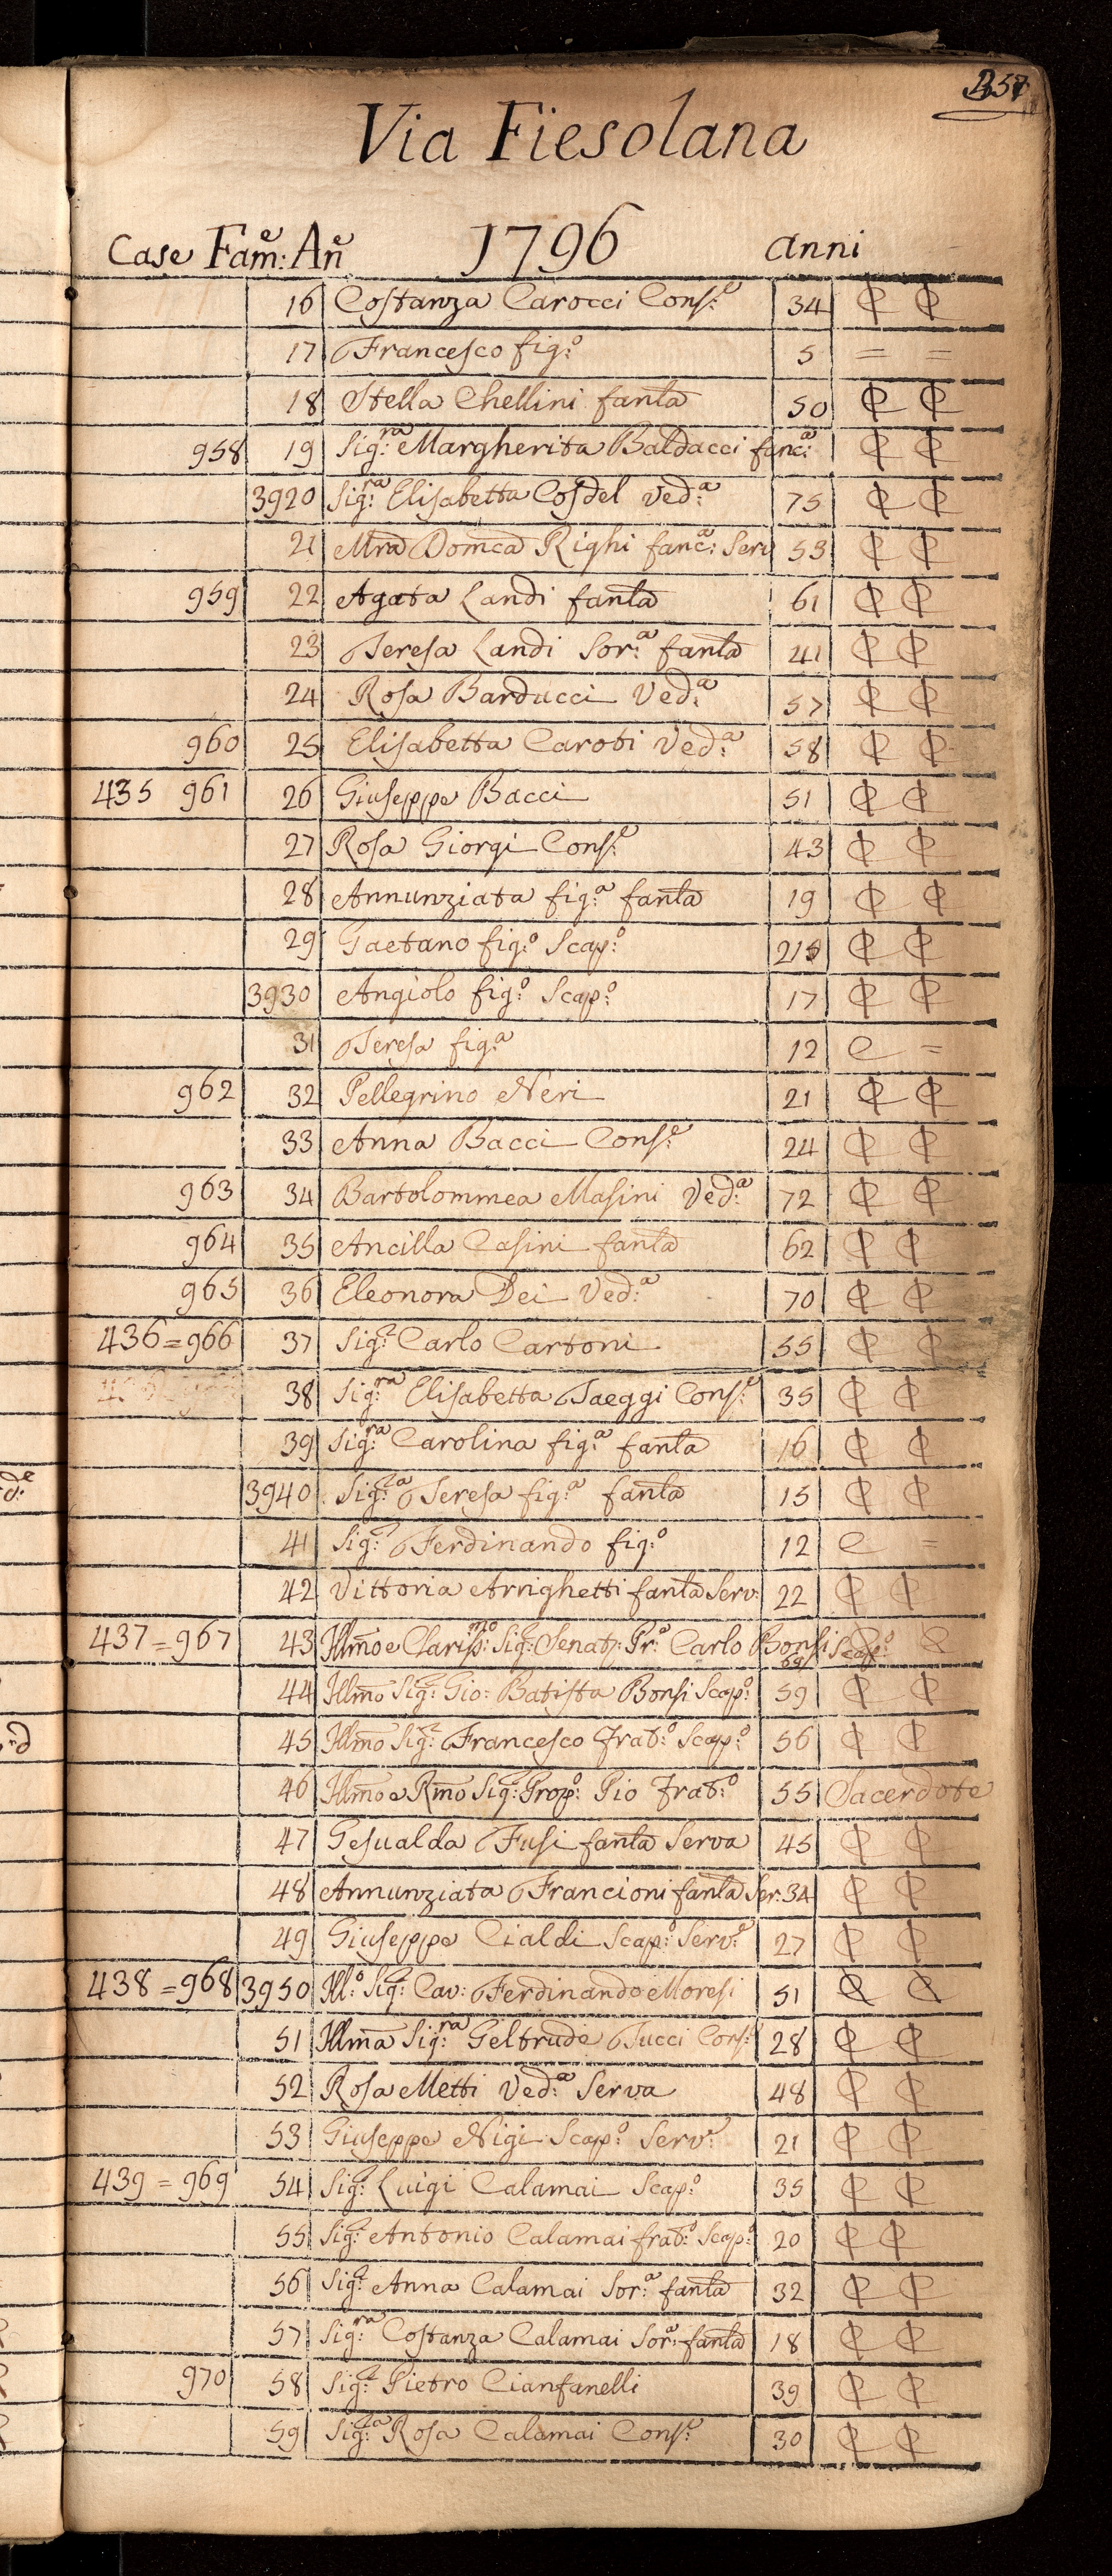 Via Fiesolana
Case Fam:e An:e 1796 anni
16 Costanza Carocci Cons:e 34 C C
17 Francesco fig:o 5 = =
18 Stella Chellini fan̄la 50 C C
958 19 Sig:ra Margherita Baldacci fanc:a C C
3920 Sig:ra Elisabetta Cosdel Ved:a 75 C C
21 M̄ra Dom̄ca Righi fanc:a Serv 53 C C
959 22 Agata Landi fan̄la 61 C C
23 Teresa Landi Sor:a fan̄la 41 C C
24 Rosa Barducci Ved:a 57 C C
960 25 Elisabetta Caroti Ved:a 58 C C
435 961 26 Giuseppe Bacci 51 C C
27 Rosa Giorgi Cons:e 43 C C
28 Annunziata fig:a fan̄la 19 C C
29 Gaetano fig:o Scap:o C C
3930 Angiolo fig:o Scap:o 17 C C
31 Teresa fig:a 12 C =
962 32 Pellegrino Neri 21 C C
33 Anna Bacci Cons:e 24 C C
963 34 Bartolommea Masini Ved:a 72 C C
964 35 Ancilla Casini fan̄la 62 C C
965 36 Eleonora Dei Ved:a 70 C C
436=966 37 Sig:r Carlo Cartoni 55 C C
38 Sig:ra Elisabetta Taeggi Cons:e 35 C C
39 Sig:ra Carolina fig:a fan̄la 16 C C
3940 Sig:ra Teresa fig:a fan̄la 15 C C
41 Sig:r Ferdinando fig:o 12 C =
42 Vittoria Arrighetti fan̄la Serv: 22 C C
437=967 43 Ill̄mo e Clariss:mo Sig:r Senat:r Pr:o Carlo Bonsi Scap:o C
44 Ill̄mo Sig:r Gio: Batista Bonsi Scap:o 59 C C
45 Ill̄mo Sig:r Francesco Frat:o Scap:o 56 C C
46 Ill̄mo e R̄mo Sig:r Prop:o Pio Frat:o 55 Sacerdote
47 Gesualda Fusi fan̄la Serva 45 C C
48 Annunziata Francioni fan̄la Ser: 34 C C
49 Giuseppe Cialdi Scap:o Serv:e 27 C C
438=968 3950 Ill:o Sig:r Cav: Ferdinando Moresi 51 C C
51 Ill̄ma Sig:ra Geltrude Tucci Cons: 28 C C
52 Rosa Metti Ved:a Serva 48 C C
53 Giuseppe Nigi Scap:o Serv:e 21 C C
439=969 54 Sig:r Luigi Calamai Scap:o 35 C C
55 Sig:r Antonio Calamai frat:o Scap:o 20 C C
56 Sig:a Anna Calamai Sor:a fan̄la 32 C C
57 Sig:ra Costanza Calamai Sor:a fan̄la 18 C C
970 58 Sig:r Pietro Cianfanelli 39 C C
59 Sig:ra Rosa Calamai Cons:e 30 C C